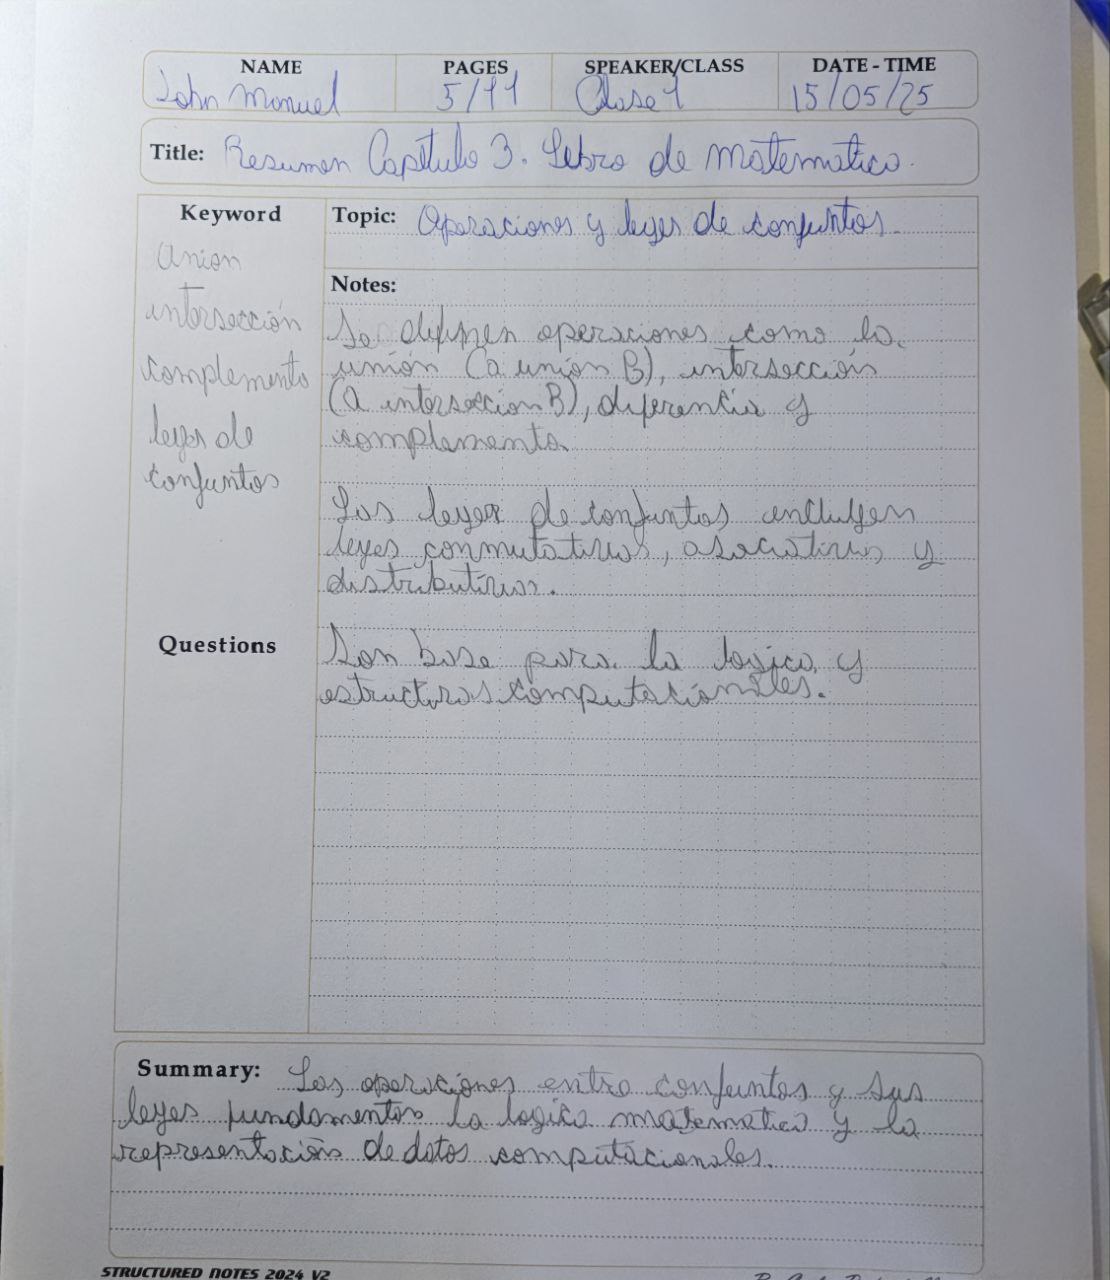 NAME PAGES SPEAKER/CLASS DATE - TIME
John Manuel 5/11 Clase 1 15/05/25
Title: Resumen Capítulo 3. Libro de matematica.
Keyword
Union
intersección
complemento
leyes de
conjuntos
Topic: Operaciones y leyes de conjuntos.
Notes:
Se definen operaciones como la
unión (a unión B), intersección
(a intersección B), diferencia y
complemento.
Las leyes de conjuntos incluyen
leyes conmutativas, asociativas y
distributivas.
Questions
Son base para la logica y
estructuras computacionales.
Summary: Las operaciones entre conjuntos y sus
leyes fundamentan la logica matematica y la
representación de datos computacionales.
STRUCTURED NOTES 2024 V2